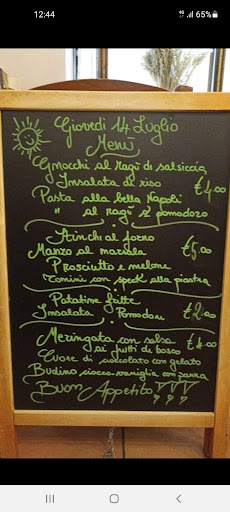 12:44
4G 65%
Giovedì 14 Luglio
Menù
Gnocchi al Ragù di salsiccia
Insalata di riso
€4.00
Pasta alla bella Napoli
" al ragù o pomodoro
Stinchi al forno
€5.00
Manzo al marsala
Prosciutto e melone
Tomini con speck alla piastra
Patatine fritte
€2.00
Insalata Pomodori
Meringata con salsa
€4.00
ai frutti di bosco
Cuore di cioccolato con gelato
Budino ciocco-vaniglia con panna
Buon Appetito!!!